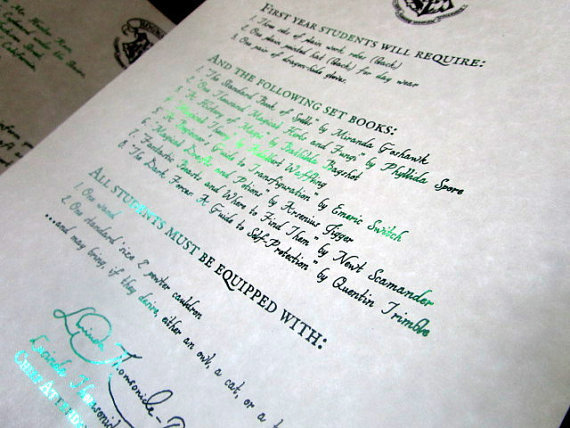 Mr.
California.
FIRST YEAR STUDENTS WILL REQUIRE:
1. Three sets of plain work robes (Black)
2. One plain pointed hat (Black) for day wear
3. One pair of dragon-hide gloves
AND THE FOLLOWING SET BOOKS:
1. "The Standard Book of Spells" by Miranda Goshawk
2. "One Thousand Magical Herbs and Fungi" by Phyllida Spore
3. "A History of Magic" by Bathilda Bagshot
4. "Magical Theory" by Adalbert Waffling
5. "A Beginners' Guide to Transfiguration" by Emeric Switch
6. "Magical Drafts and Potions" by Arsenius Jigger
7. "Fantastic Beasts and Where to Find Them" by Newt Scamander
8. "The Dark Forces: A Guide to Self-Protection" by Quentin Trimble
ALL STUDENTS MUST BE EQUIPPED WITH:
1. One wand
2. One standard size 2 pewter cauldron
...and may bring, if they desire, either an owl, a cat, or a t
Lucinda Thomsonicle-P
Lucinda Thomsonicle
CHIEF ATTEND